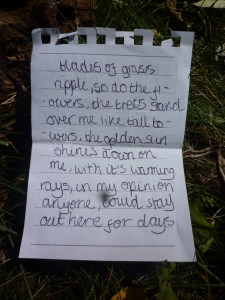 blades of grass
ripple, so do the fl-
owers, the trees stand
over me like tall to-
wers, the golden sun
shines down on
me, with it's warming
rays, in my opinion
anyone, could stay
out here for days